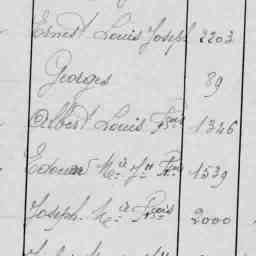 Ernest Louis Joseph 2203
Georges 89
Albert Louis Fçois 1346
Edouard Mie Jh Fçois 1539
Joseph Mie Fçois 2000